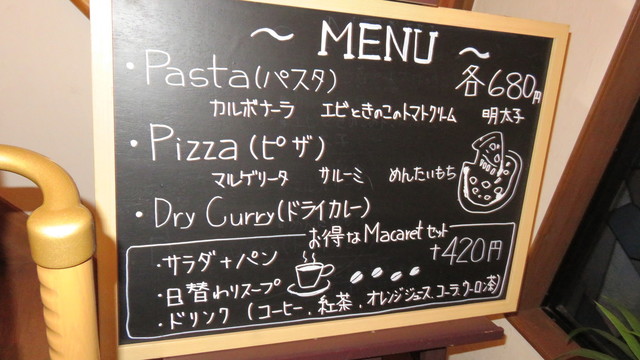 ～ MENU ～
・Pasta(パスタ) 各680円
カルボナーラ エビときのこのトマトクリーム 明太子
・Pizza(ピザ)
マルゲリータ サルーミ めんたいもち
・Dry Curry(ドライカレー)
お得なMacaretセット
・サラダ+パン +420円
・日替わりスープ
・ドリンク (コーヒー、紅茶、オレンジジュース、コーラ、ウーロン茶)